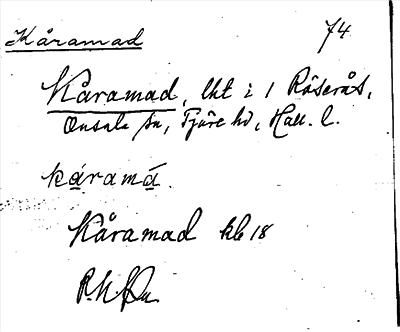 Kåramad
74
Kåramad, lht i 1 Röserås,
Onsala sn, Fjäre hd, Hall. l.
káramá.
Kåramad kb 18